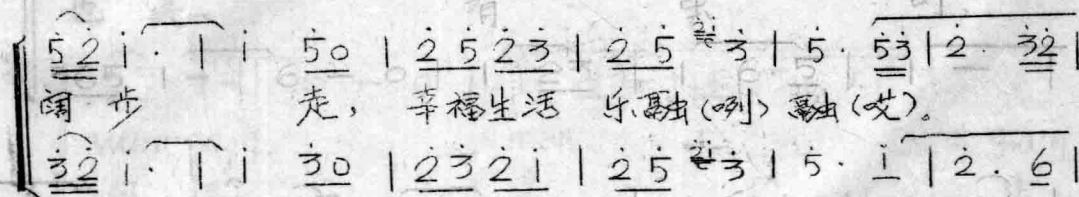 5̇2̇ i̇· | i̇ 5̇0 | 2̇5 2̇3̇ | 2̇5 2̇i̇ 3̇ | 5· 5̇3̇ | 2̇· 3̇2̇ |
阔步 走，幸福生活 乐融(咧)融(哎)。
3̇2̇ i̇· | i̇ 3̇0 | 2̇3̇ 2̇i̇ | 2̇5 2̇i̇ 3̇ | 5· i̇ | 2̇· 6 |